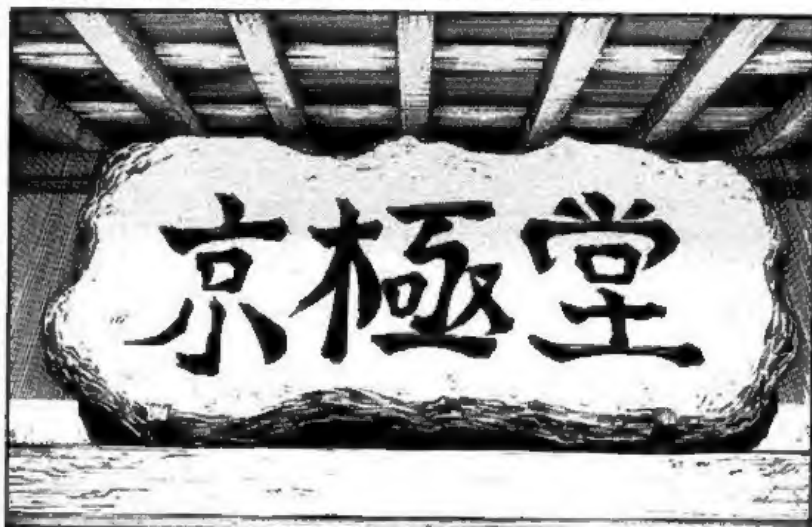 京極堂